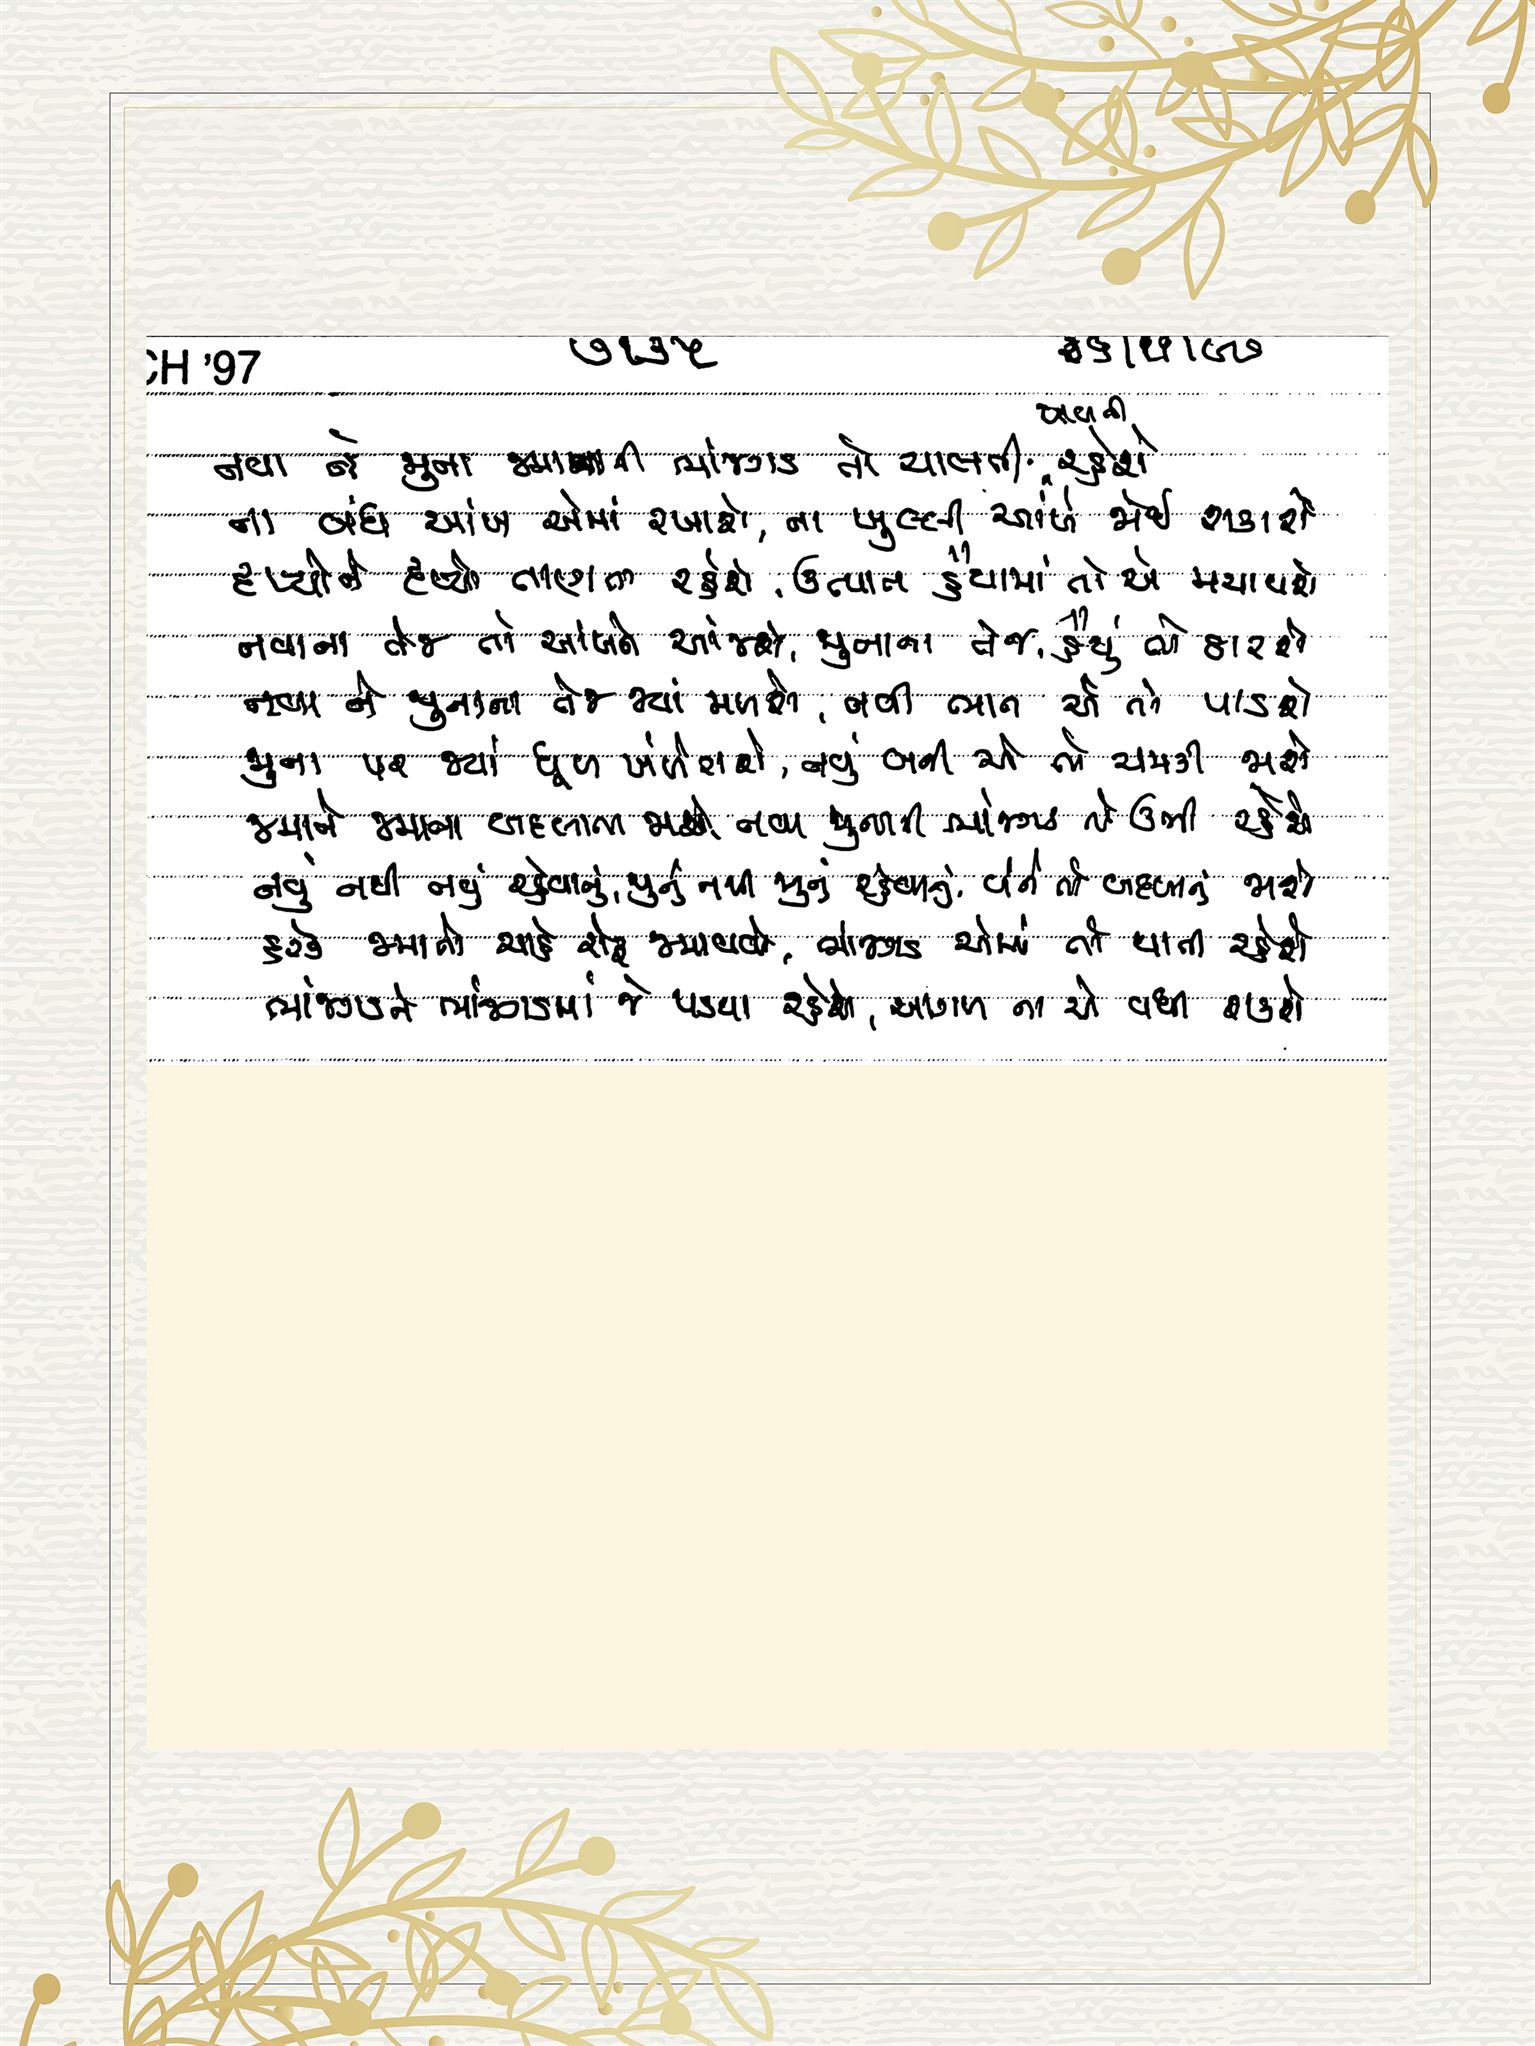 CH '97
ચાલતી
નવા ને જુના જમાનાની ભાંજગડ તો ચાલતી રહેશે
ના બંધ આંખ એમાં રખાશે, ના ખુલ્લી આંખે જોઈ શકાશે
દૃશ્યોને દૃશ્યો તાણતા રહેશે, ઉત્પાત હૈયામાં તો એ મચાવશે
નવાના તેજ તો આંખને આંજશે, જુનાના તેજ, હૈયું તો ઠારશે
નવા ને જુનાના તેજ જ્યાં મળશે, નવી ભાત એ તો પાડશે
જુના પર જ્યાં ધૂળ ખંખેરાશે, નવું બની એ તો ચમકી જાશે
જમાને જમાના બદલાતા જાશે, નવા જુનાની ભાંજગડ તો ઉભી રહેશે
નવું નથી નવું રહેવાનું, જુનું નથી જુનું રહેવાનું, બંને તો બદલાતું જાશે
હરેક જમાનો ચાહે રોફ જમાવવો, ભાંજગડ એમાં તો થાતી રહેશે
ભાંજગડને ભાંજગડમાં જે પડયા રહેશે, આગળ ના એ વધી શકશે